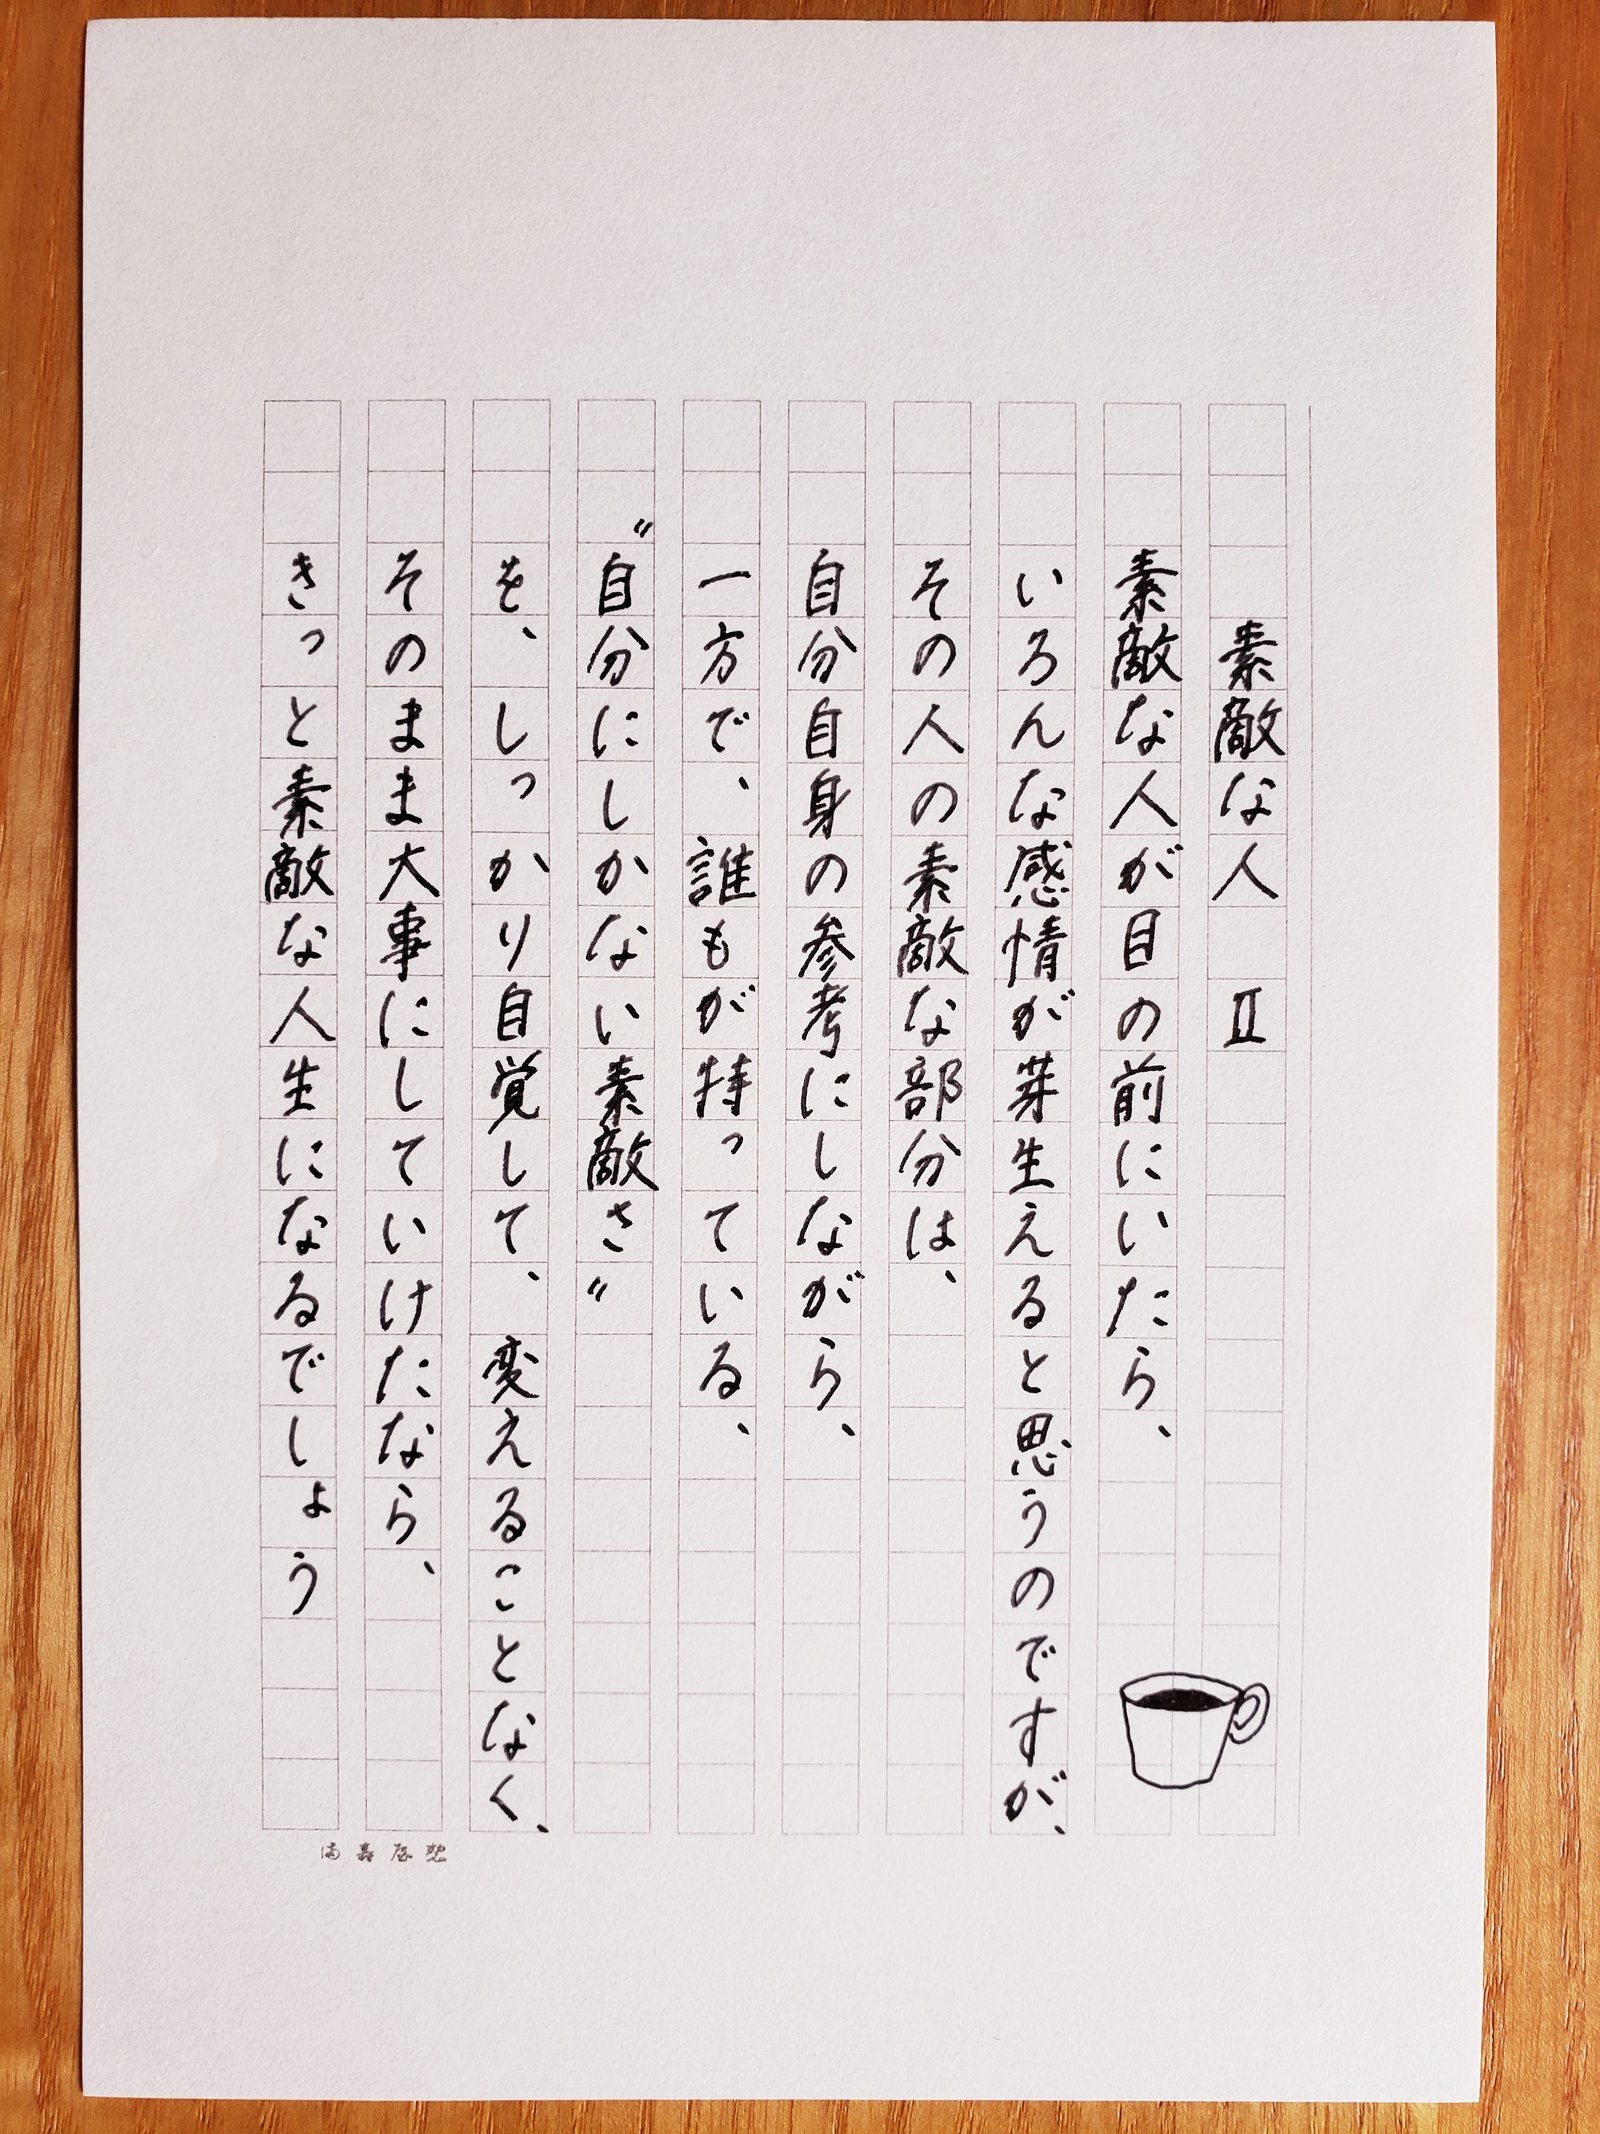 素敵な人　Ⅱ
素敵な人が目の前にいたら、
いろんな感情が芽生えると思うのですが、
その人の素敵な部分は、
自分自身の参考にしながら、
一方で、誰もが持っている、
〝自分にしかない素敵さ〟
を、しっかり自覚して、変えることなく、
そのまま大事にしていけたなら、
きっと素敵な人生になるでしょう